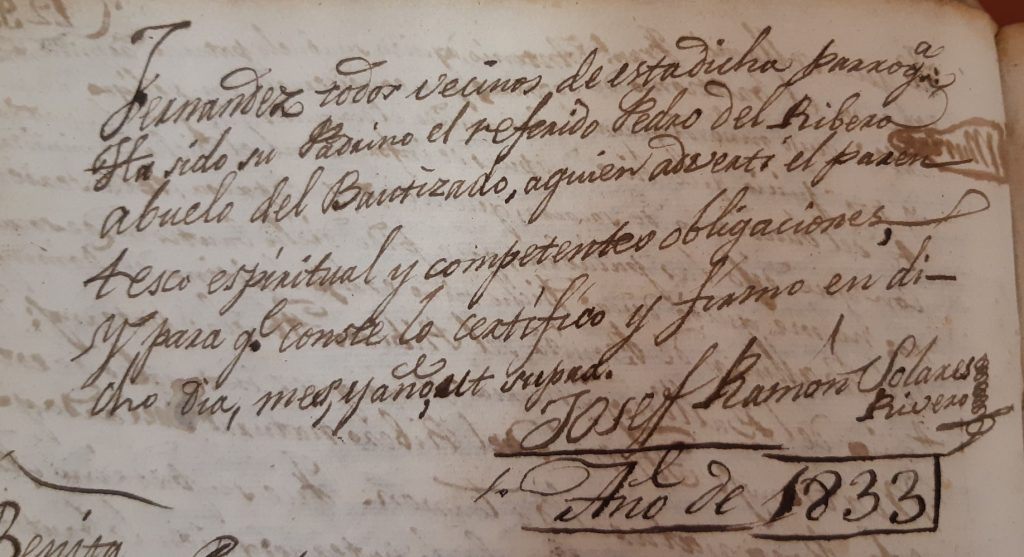 Fernandez todos vecinos, de esta dicha parroqª.
Ha sido su Padrino el referido Pedro del Ribero
abuelo del Bautizado, aquien adverti el paren
tesco espiritual y competentes obligaciones,
Y para qᵉ. conste lo certifico y firmo en di-
cho dia, mes, y año, ut supra.
Josef Ramon Solares
Rivero
Año de 1833
Benita